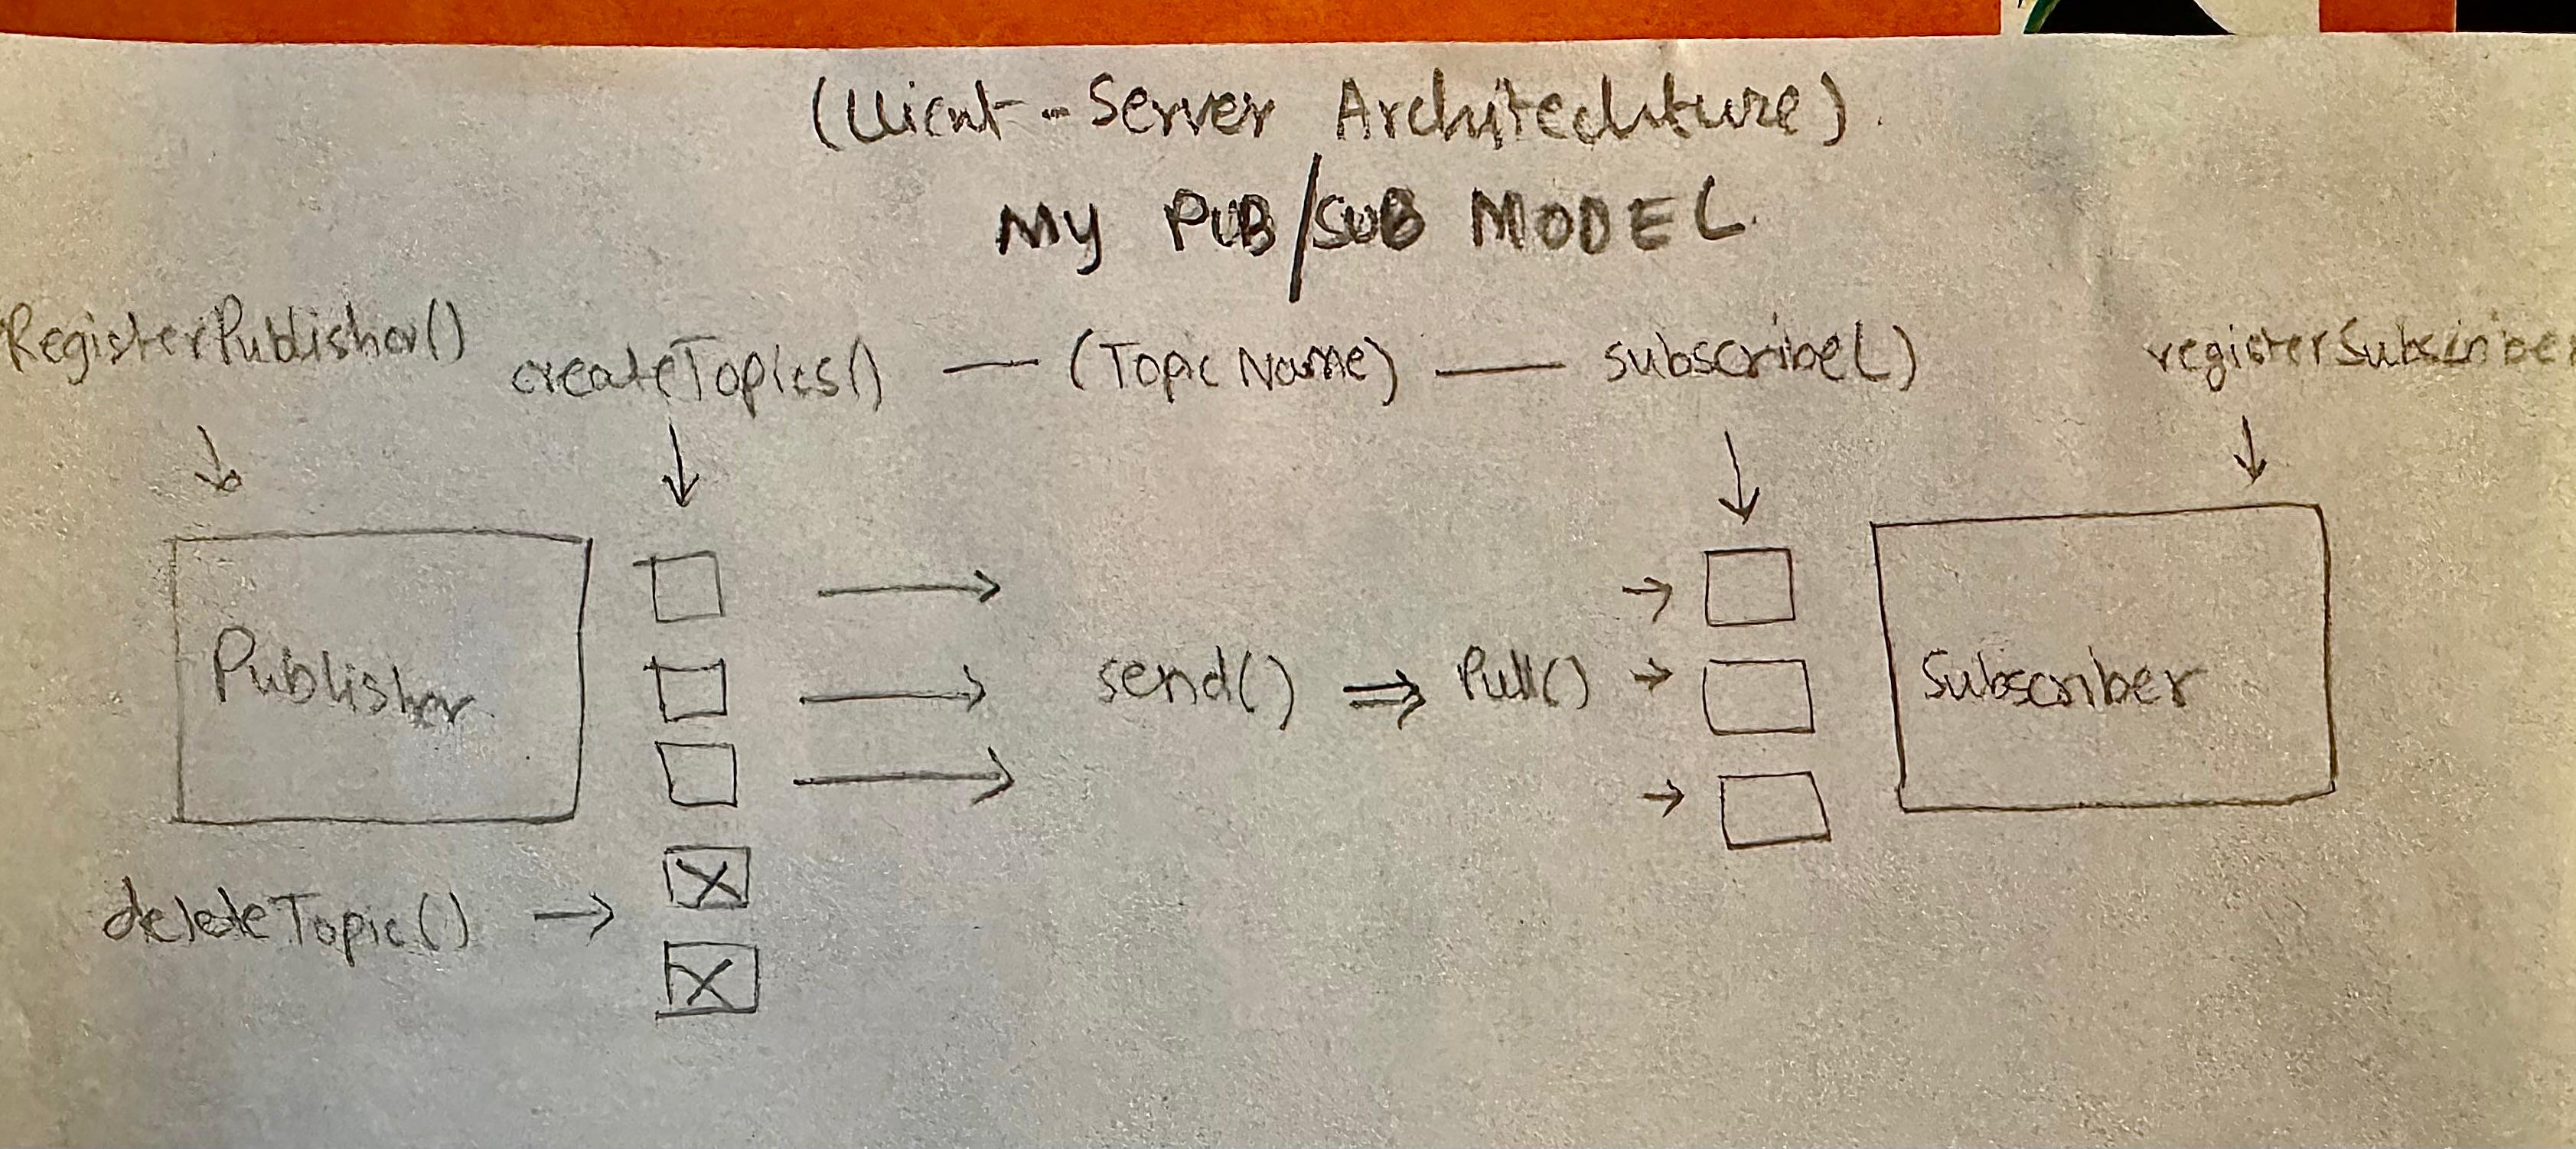 (Client - Server Architechture)
MY PUB/SUB MODEL
RegisterPublisher()
createTopics() — (Topic Name) — subscribe()
registerSubscriber
Publisher
send() ⇒ Pull()
Subscriber
deleteTopic() →